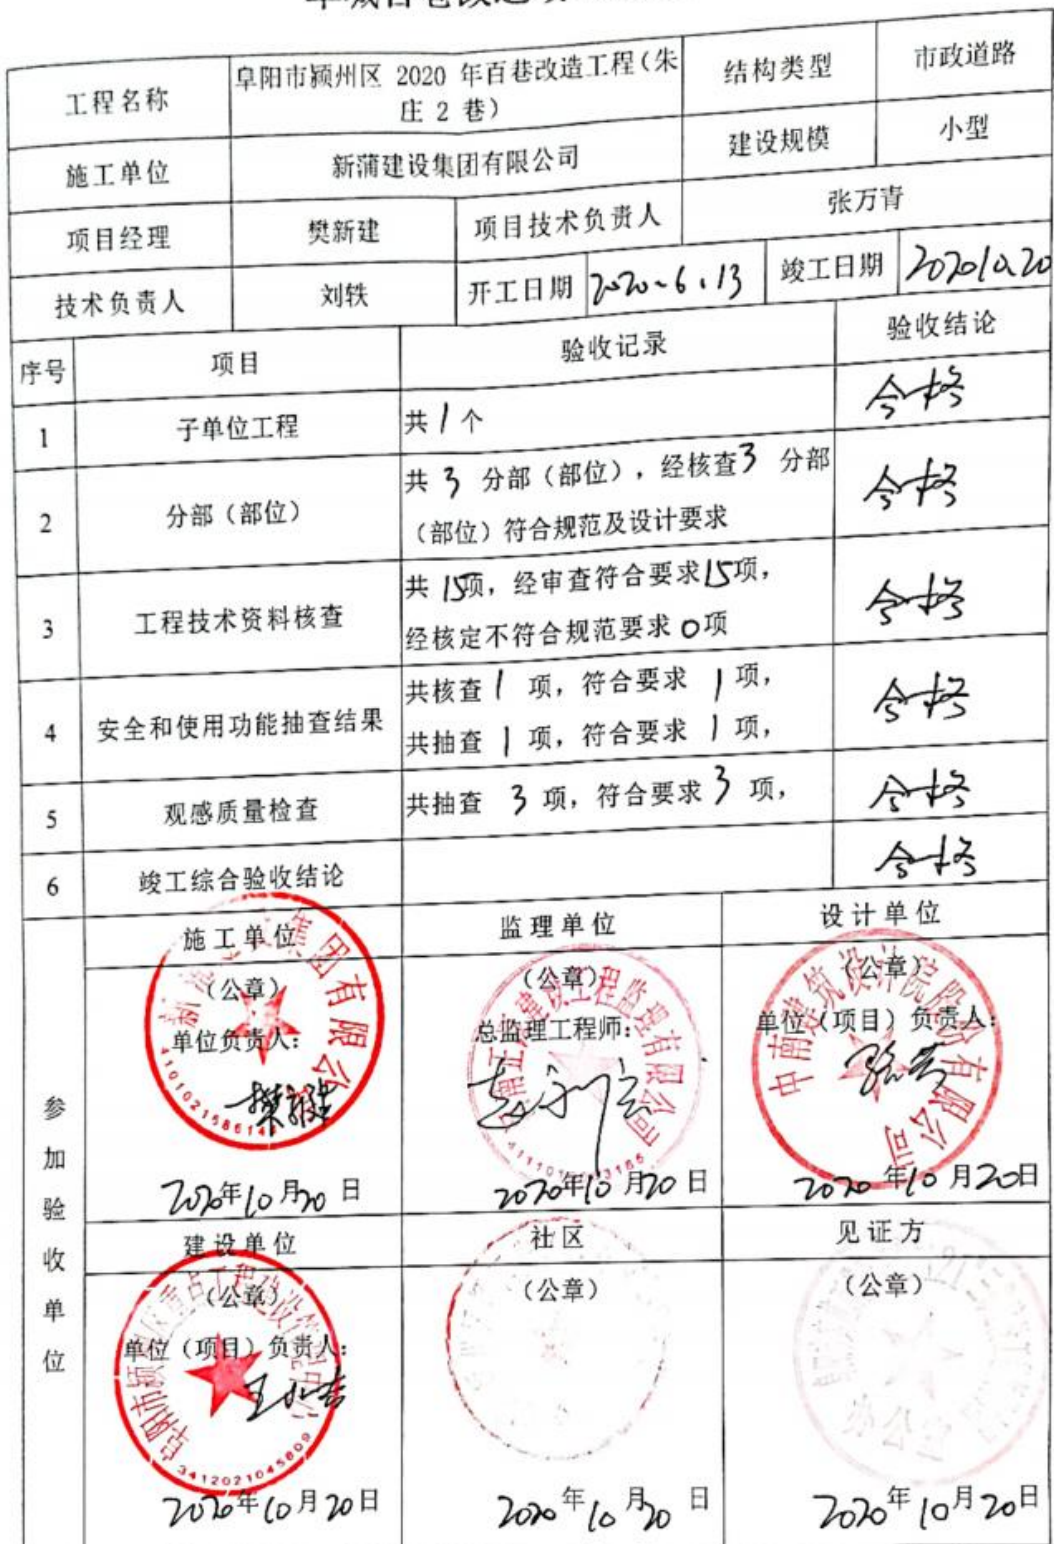 工程名称 阜阳市颍州区 2020 年百巷改造工程（朱庄 2 巷） 结构类型 市政道路
施工单位 新蒲建设集团有限公司 建设规模 小型
项目经理 樊新建 项目技术负责人 张万青
技术负责人 刘轶 开工日期 2020.6.13 竣工日期 2020.10.20
序号 项目 验收记录 验收结论
1 子单位工程 共 1 个 合格
2 分部（部位） 共 3 分部（部位），经核查 3 分部
（部位）符合规范及设计要求 合格
3 工程技术资料核查 共 15项，经审查符合要求15项，
经核定不符合规范要求 0项 合格
4 安全和使用功能抽查结果 共核查 1 项，符合要求 1 项，
共抽查 1 项，符合要求 1 项， 合格
5 观感质量检查 共抽查 3 项，符合要求 3 项， 合格
6 竣工综合验收结论 合格
参加验收单位
施工单位 监理单位 设计单位
（公章） （公章） （公章）
单位负责人： 总监理工程师： 单位（项目）负责人：
樊新建
2020年10月20日 2020年10月20日 2020年10月20日
建设单位 社区 见证方
（公章） （公章） （公章）
单位（项目）负责人：
2020年10月20日 2020年10月20日 2020年10月20日
集团有限公司
工程监理有限公司
中南建筑设计院股份有限公司
3412021045809
办公室